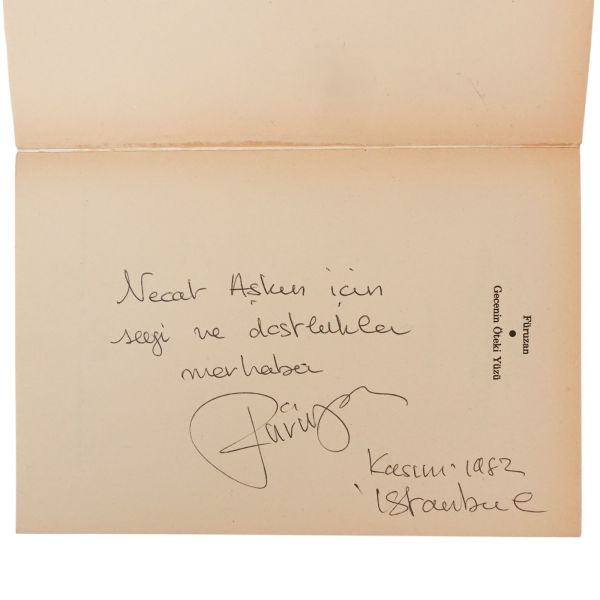 Necat Aşkın için
sevgi ve dostlukla
merhaba
Füruzan
Kasım 1982
İstanbul
Füruzan
Gecenin Öteki Yüzü